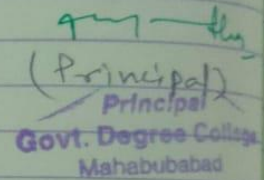 (Principal)
Principal
Govt. Degree College
Mahabubabad